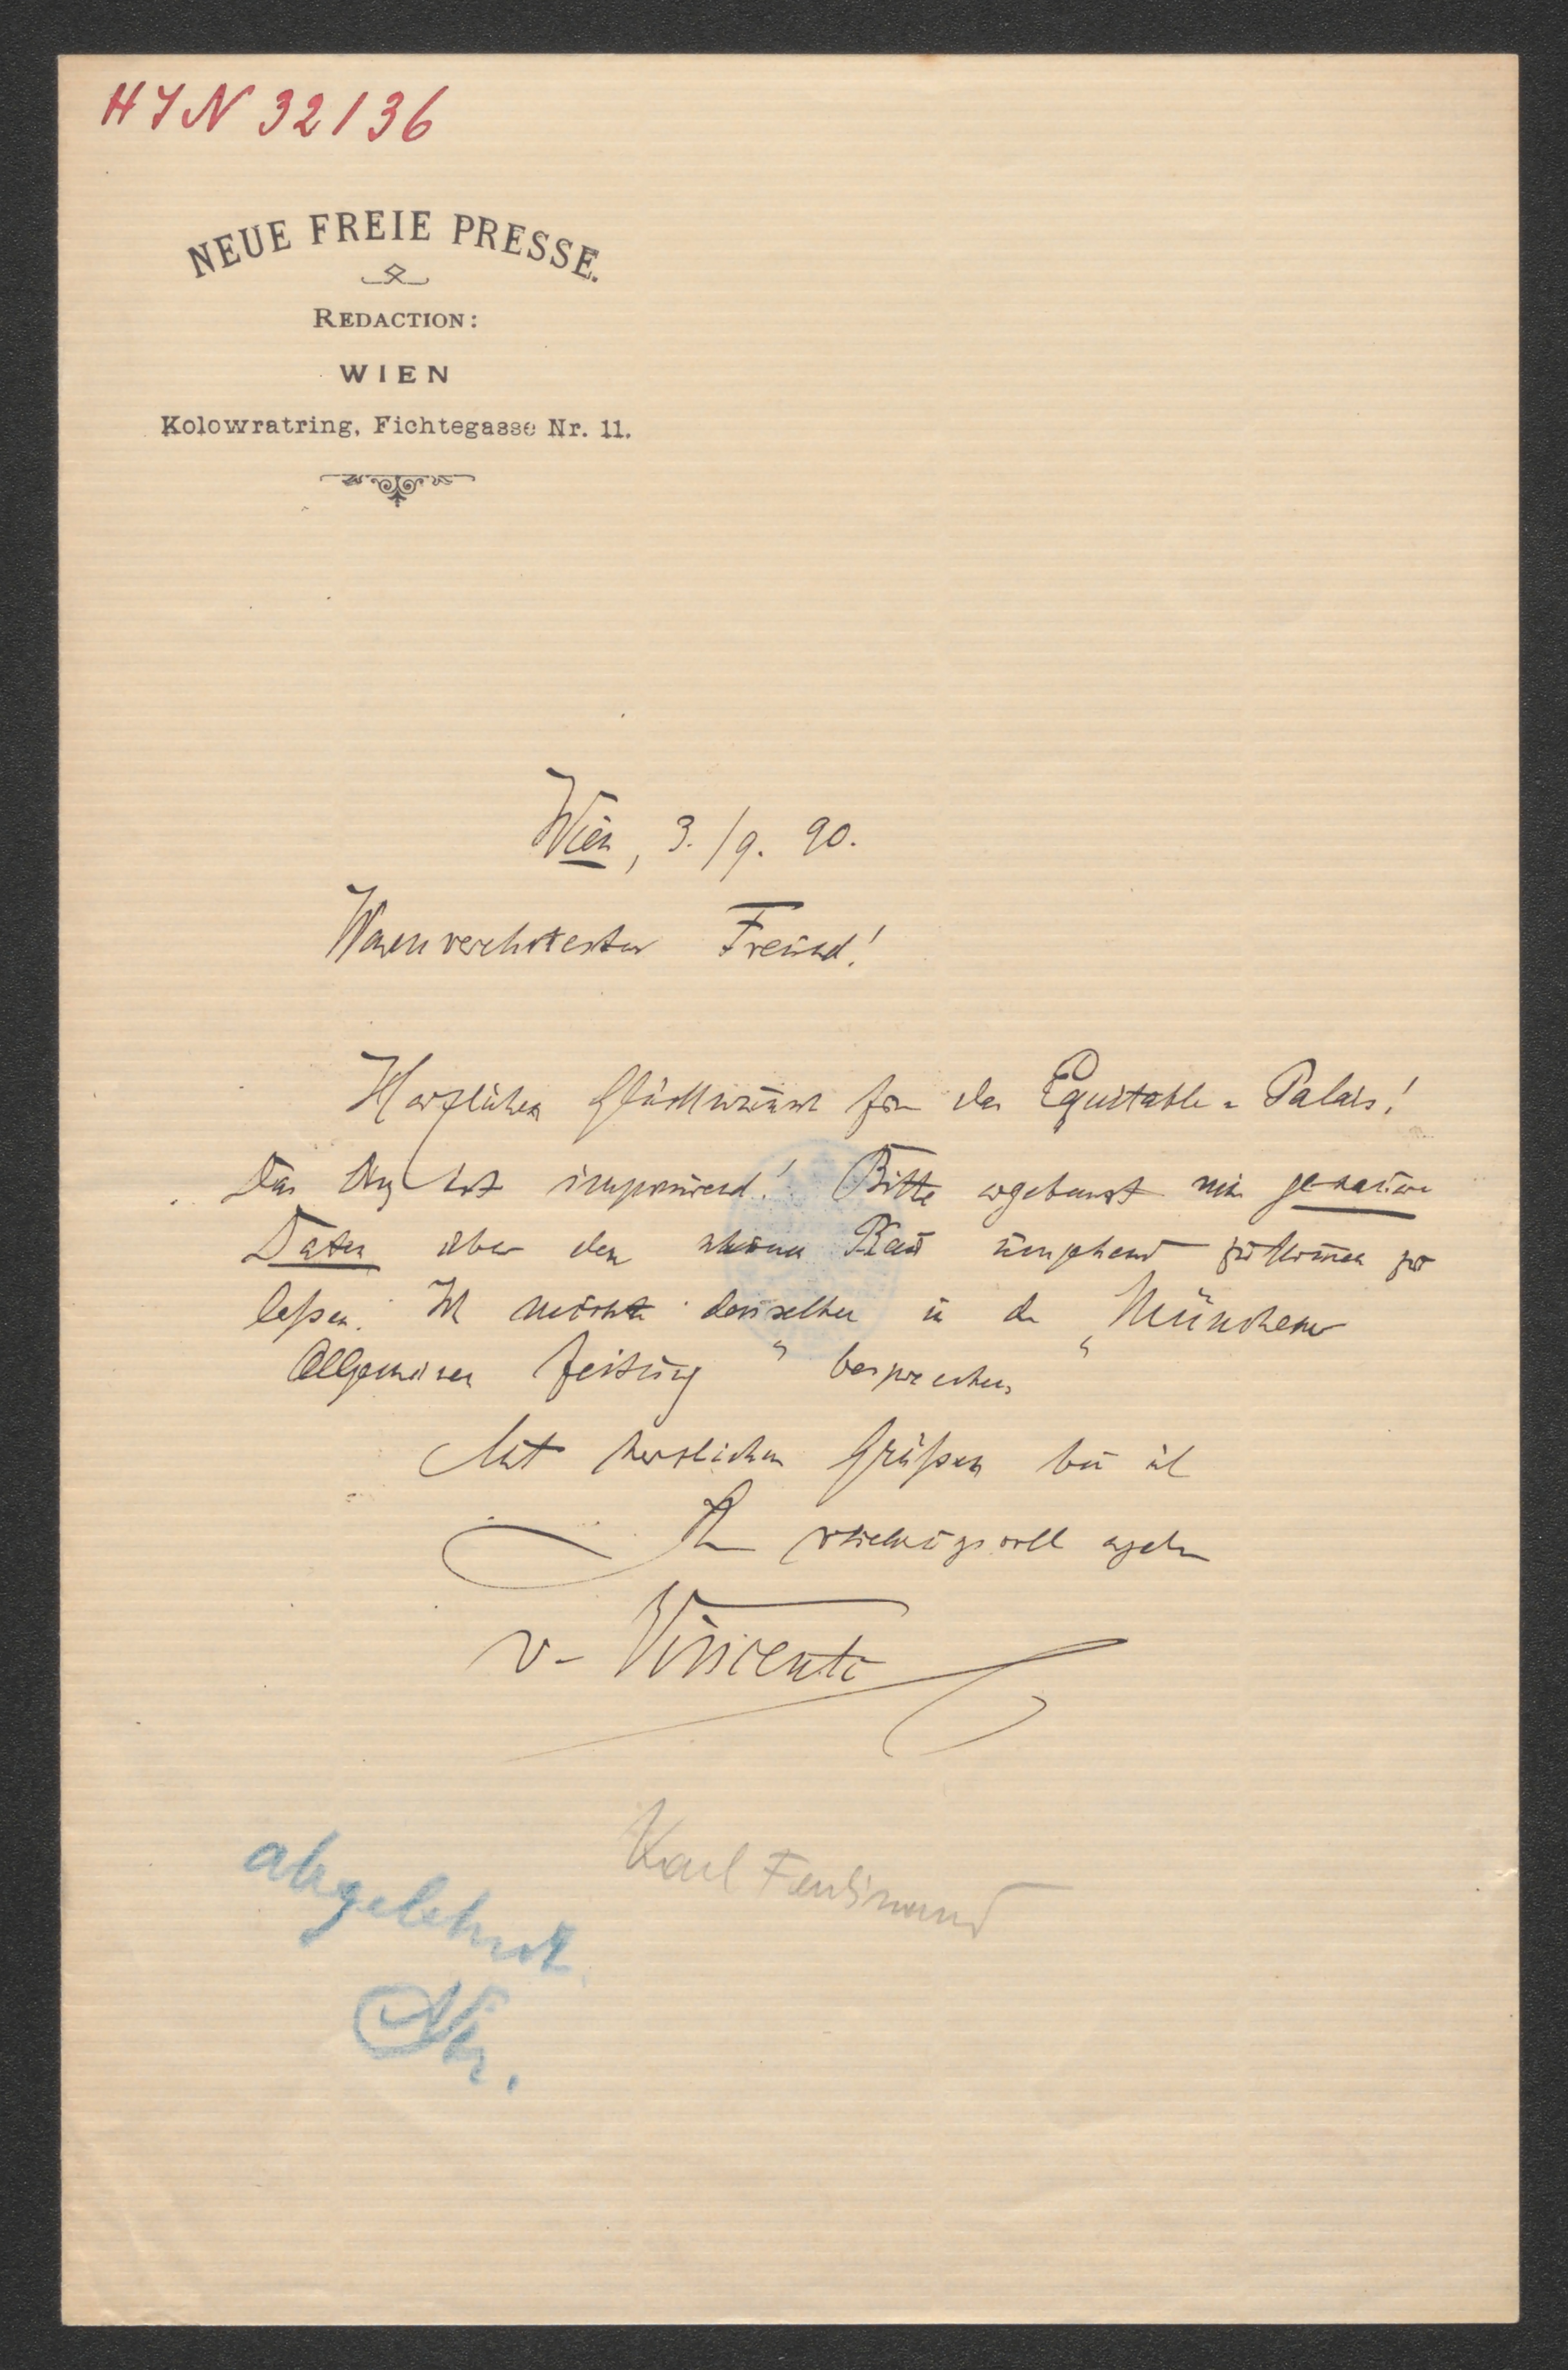 HIN 32136
NEUE FREIE PRESSE.
REDACTION:
WIEN
Kolowratring, Fichtegasse Nr. 11.
Wien, 3./9. 90.
Freund!
Herzlichen Glückwunsch für das Equitable-Palais!
Das ist imponirend! Bitte ergebenst mir genaue
Daten über den schönen Bau umgehend zukommen zu
laßen. Ich möchte denselben in der „Münchener
Allgemeinen Zeitung" besprechen.
Mit herzlichen Grüßen bin ich
Ihr hochachtungsvoll ergeb.
v. Vincenti
Karl Ferdinand
abgelehnt.